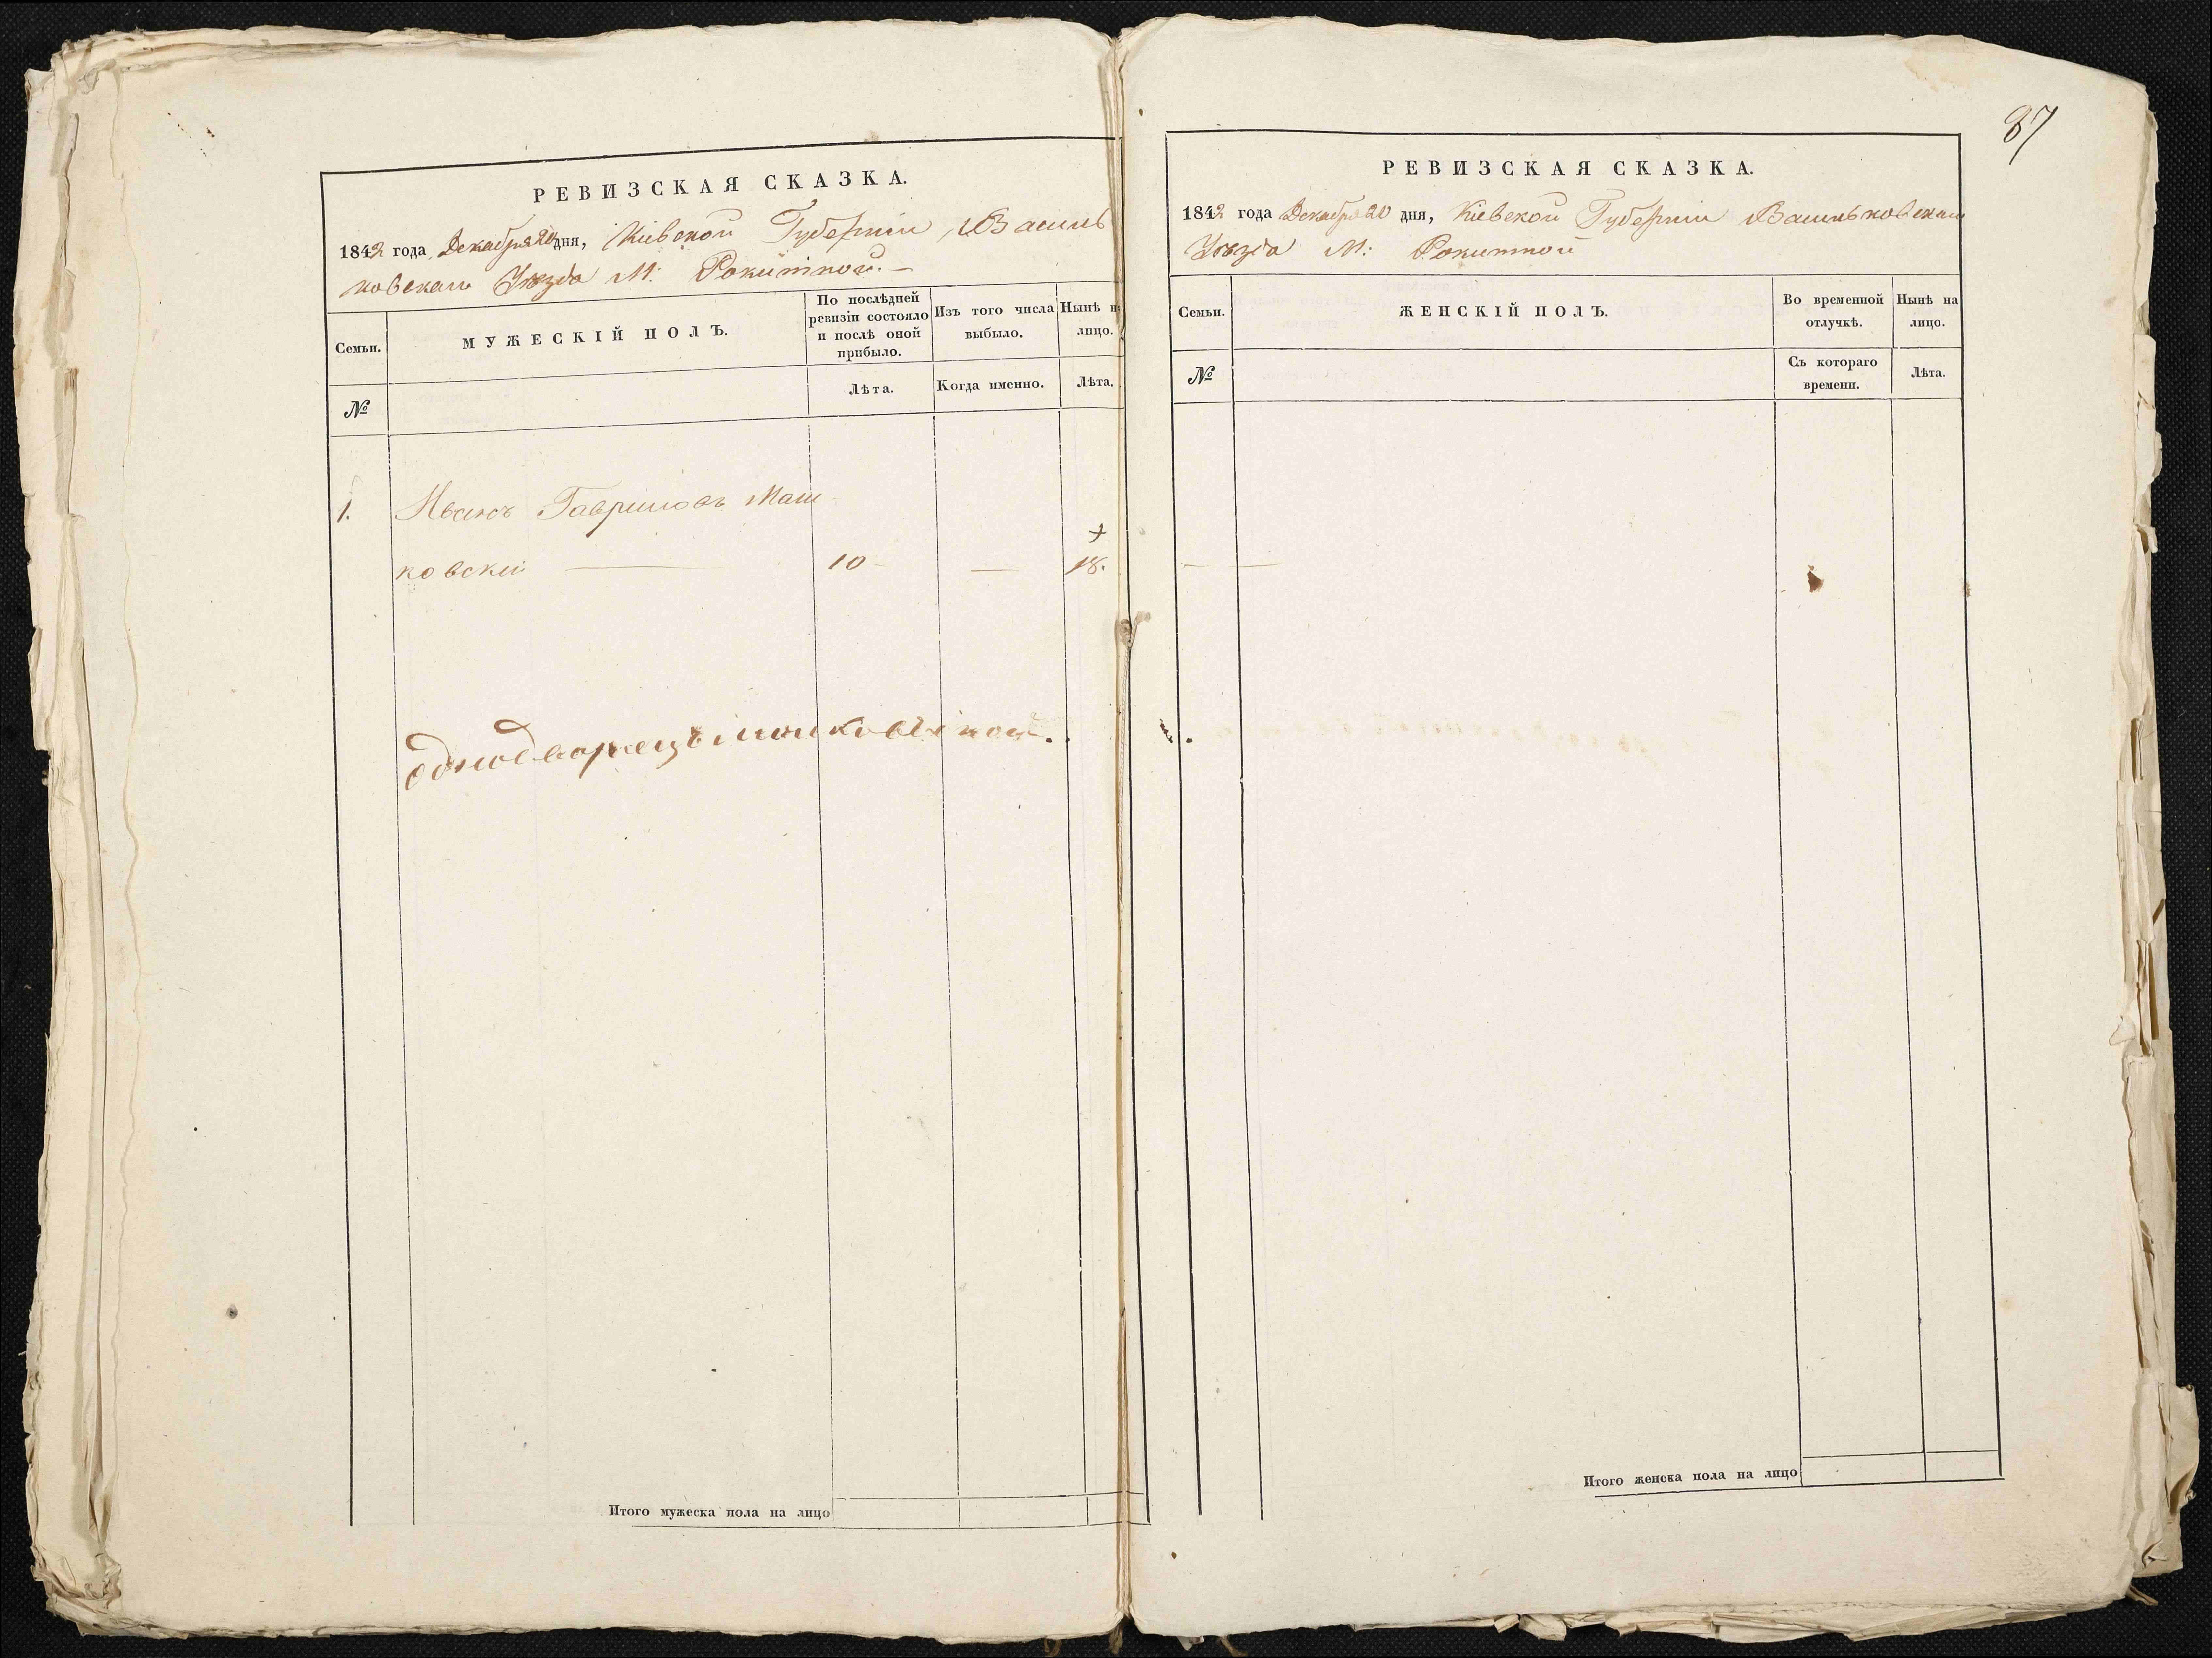 РЕВИЗСКАЯ СКАЗКА.
1842 года Декабря 20 дня, Кіевской Губерніи, Василь
ковскаго Уѣзда М: Рокитной.—
Семьи.
МУЖЕСКІЙ ПОЛЪ.
По послѣдней
ревизіи состояло
и послѣ оной
прибыло.
Изъ того числа
выбыло.
Нынѣ н
лицо.
№
Лѣта.
Когда именно.
Лѣта.
1. Иванъ Гавриловъ Маш
ковскій — 10 — — 18.
однодворецъ
Итого мужеска пола на лицо
87
РЕВИЗСКАЯ СКАЗКА.
1842 года Декабря 20 дня, Кіевской Губерніи Васильковскаго
Уѣзда М: Рокитной
Семьи.
ЖЕНСКІЙ ПОЛЪ.
Во временной
отлучкѣ.
Нынѣ на
лицо.
№
Съ котораго
времени.
Лѣта.
Итого женска пола на лицо